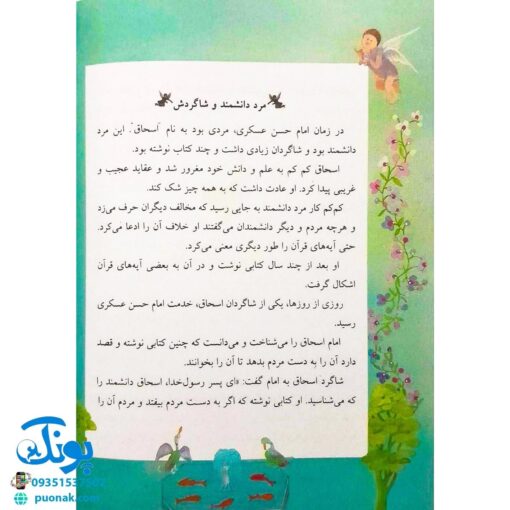 مرد دانشمند و شاگردش
در زمان امام حسن عسکری، مردی بود به نام "اسحاق". این مرد
دانشمند بود و شاگردان زیادی داشت و چند کتاب نوشته بود.
اسحاق کم کم به علم و دانش خود مغرور شد و عقاید عجیب و
غریبی پیدا کرد. او عادت داشت که به همه چیز شک کند.
کم‌کم کار مرد دانشمند به جایی رسید که مخالف دیگران حرف می‌زد
و هرچه مردم و دیگر دانشمندان می‌گفتند او خلاف آن را ادعا می‌کرد.
حتی آیه‌های قرآن را طور دیگری معنی می‌کرد.
او بعد از چند سال کتابی نوشت و در آن به بعضی آیه‌های قرآن
اشکال گرفت.
روزی از روزها، یکی از شاگردان اسحاق، خدمت امام حسن عسکری
رسید.
امام اسحاق را می‌شناخت و می‌دانست که چنین کتابی نوشته و قصد
دارد آن را به دست مردم بدهد تا آن را بخوانند.
شاگرد اسحاق به امام گفت: «ای پسر رسول‌خدا، اسحاق دانشمند را
که می‌شناسید. او کتابی نوشته که اگر به دست مردم بیفتد و مردم آن را
پونک
puonak.com